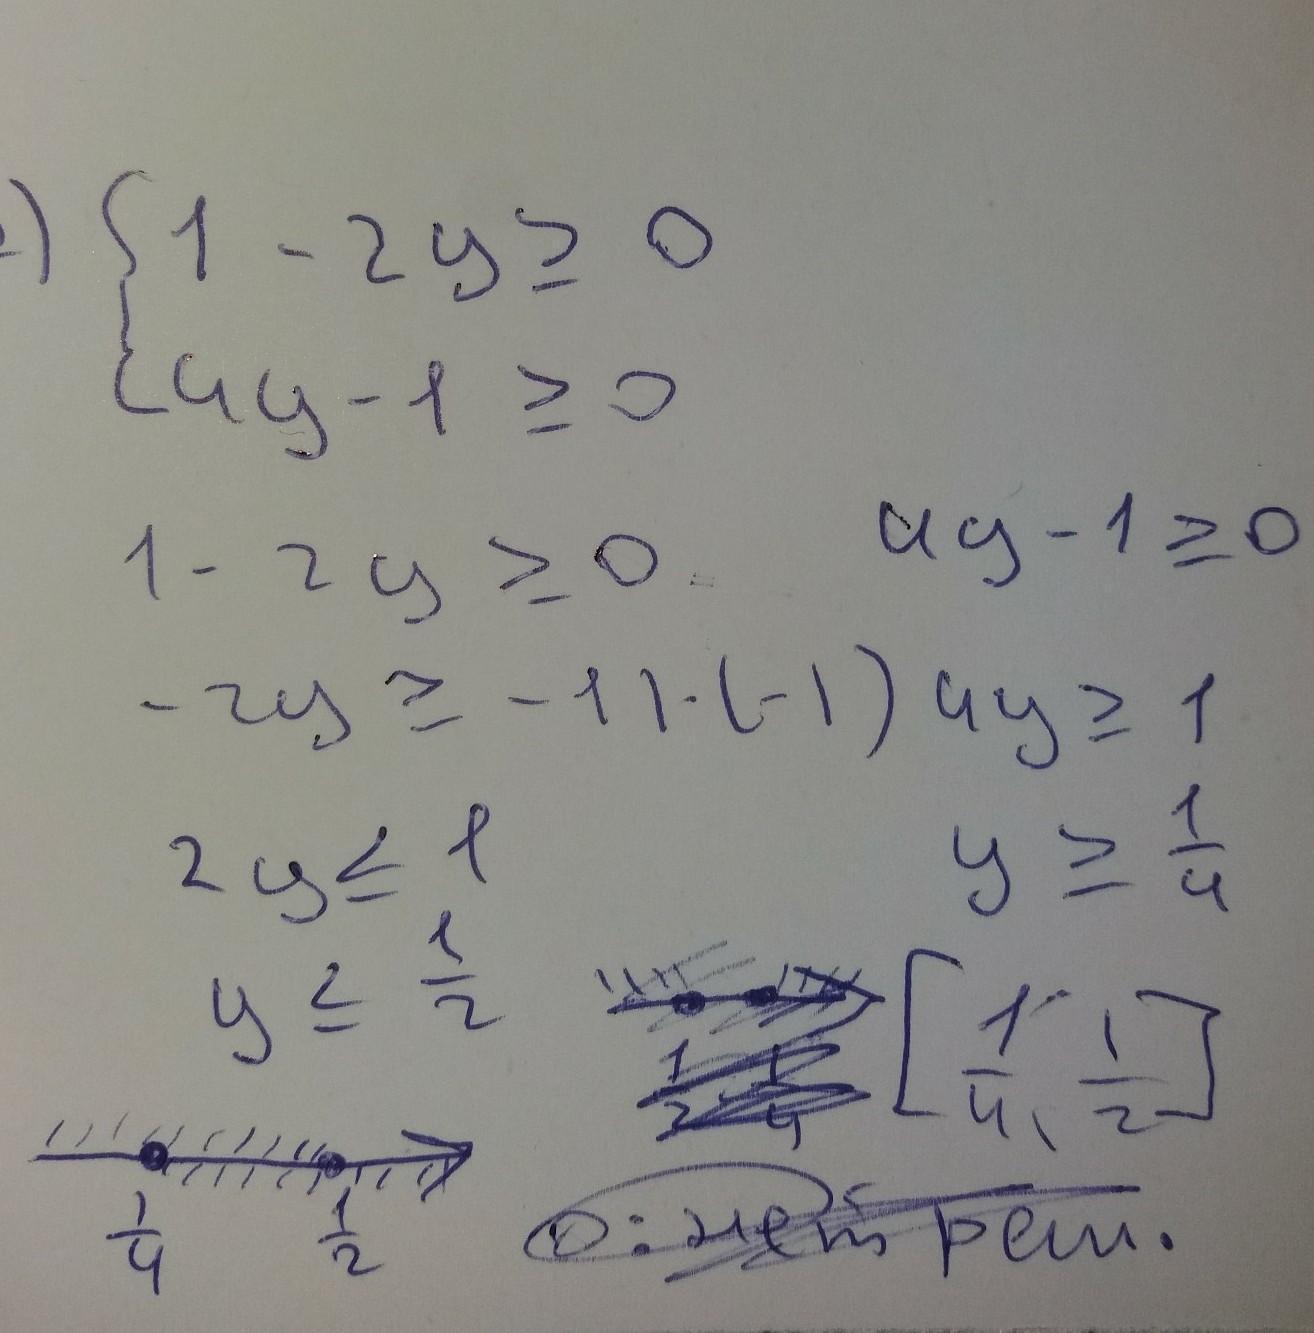 {1 - 2y ≥ 0
{4y - 1 ≥ 0
1 - 2y ≥ 0
-2y ≥ -1 | · (-1)
2y ≤ 1
y ≤ 1/2
4y - 1 ≥ 0
4y ≥ 1
y ≥ 1/4
1/2 1/4
[1/4, 1/2]
1/4 1/2
О: нет реш.